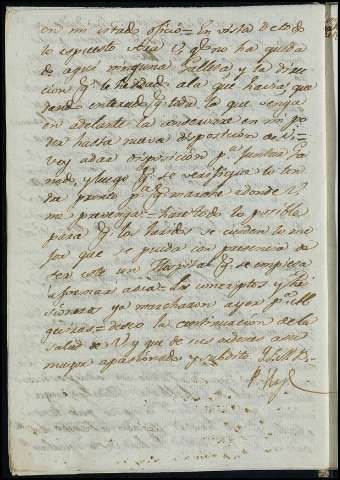 en mi citado oficio = En vista de todo
lo expuesto vera V. q.e no ha salida
de aqui ninguna Galleta, y la direc
cion q.e le ha dado a la que havia; que
dando enterado q.e toda la que venga
en adelante la conservaré en mi po
der hasta nueva disposicion de V. =
Voy a dar disposicion p.a juntar ga
nado, y luego q.e se verifique lo ten
dra pronto p.a q.e marche adonde V.
me prevenga = haré todo lo posible
para q.e los heridos se cuiden lo me
jor que se pueda con presencia de
ser este un Hospital q.e se empieza
a formar ahora = Los conscriptos y
ya marcharon ayer p.a
= deseo la continuacion de la
salud de V. y que de sus ordenes a su
mayor apasionado y subdito Q.B.S.M.